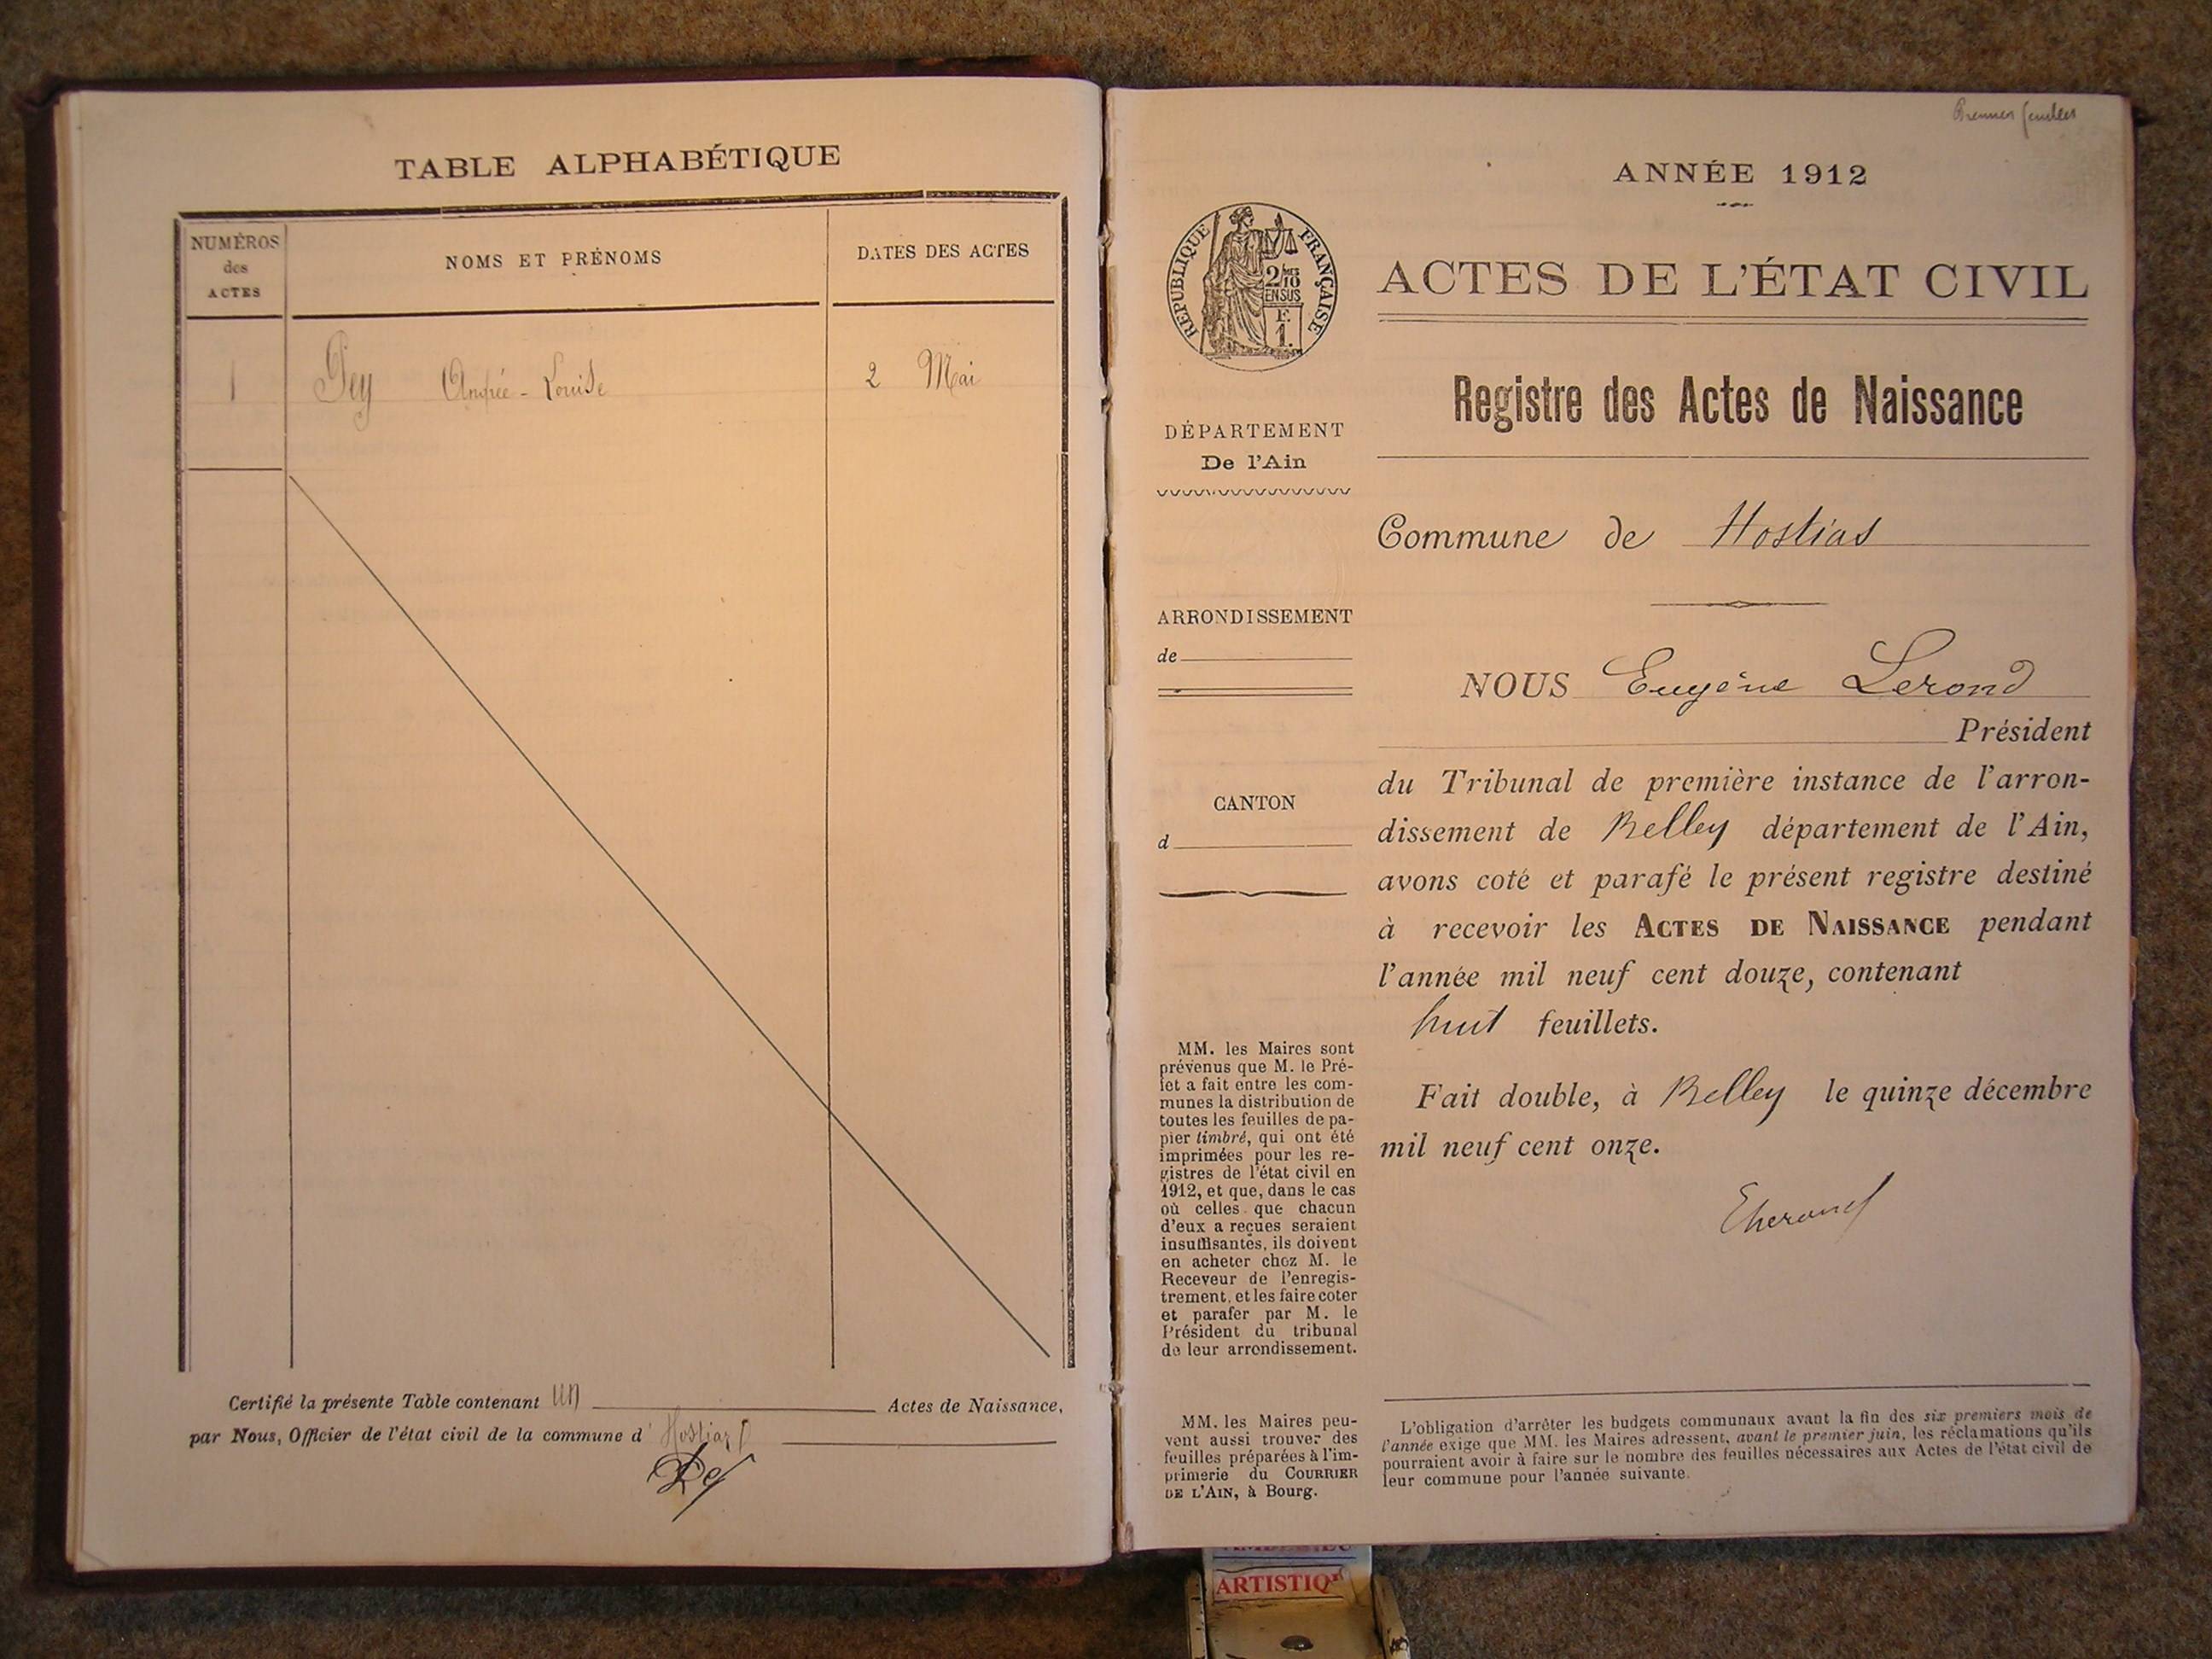 TABLE ALPHABÉTIQUE
NUMÉROS
des
ACTES
NOMS ET PRÉNOMS
DATES DES ACTES
1
Pey Andrée-Louise
2 Mai
Certifié la présente Table contenant un Actes de Naissance,
par Nous, Officier de l'état civil de la commune d'Hostiaz
ANNÉE 1912
RÉPUBLIQUE FRANÇAISE
2/10
EN SUS
F.
1.
ACTES DE L'ÉTAT CIVIL
Registre des Actes de Naissance
DÉPARTEMENT
De l'Ain
Commune de Hostias
ARRONDISSEMENT
de
NOUS Eugène Lerond
Président
du Tribunal de première instance de l'arron-
dissement de Belley département de l'Ain,
avons coté et parafé le présent registre destiné
à recevoir les ACTES DE NAISSANCE pendant
l'année mil neuf cent douze, contenant
huit feuillets.
Fait double, à Belley le quinze décembre
mil neuf cent onze.
ELerond
CANTON
d
MM. les Maires sont
prévenus que M. le Pré-
fet a fait entre les com-
munes la distribution de
toutes les feuilles de pa-
pier timbré, qui ont été
imprimées pour les re-
gistres de l'état civil en
1912, et que, dans le cas
où celles que chacun
d'eux a reçues seraient
insuffisantes, ils doivent
en acheter chez M. le
Receveur de l'enregis-
trement, et les faire coter
et parafer par M. le
Président du tribunal
de leur arrondissement.
MM. les Maires peu-
vent aussi trouver des
feuilles préparées à l'im-
primerie du COURRIER
DE L'AIN, à Bourg.
L'obligation d'arrêter les budgets communaux avant la fin des six premiers mois de
l'année exige que MM. les Maires adressent, avant le premier juin, les réclamations qu'ils
pourraient avoir à faire sur le nombre des feuilles nécessaires aux Actes de l'état civil de
leur commune pour l'année suivante.
ARTISTIQ